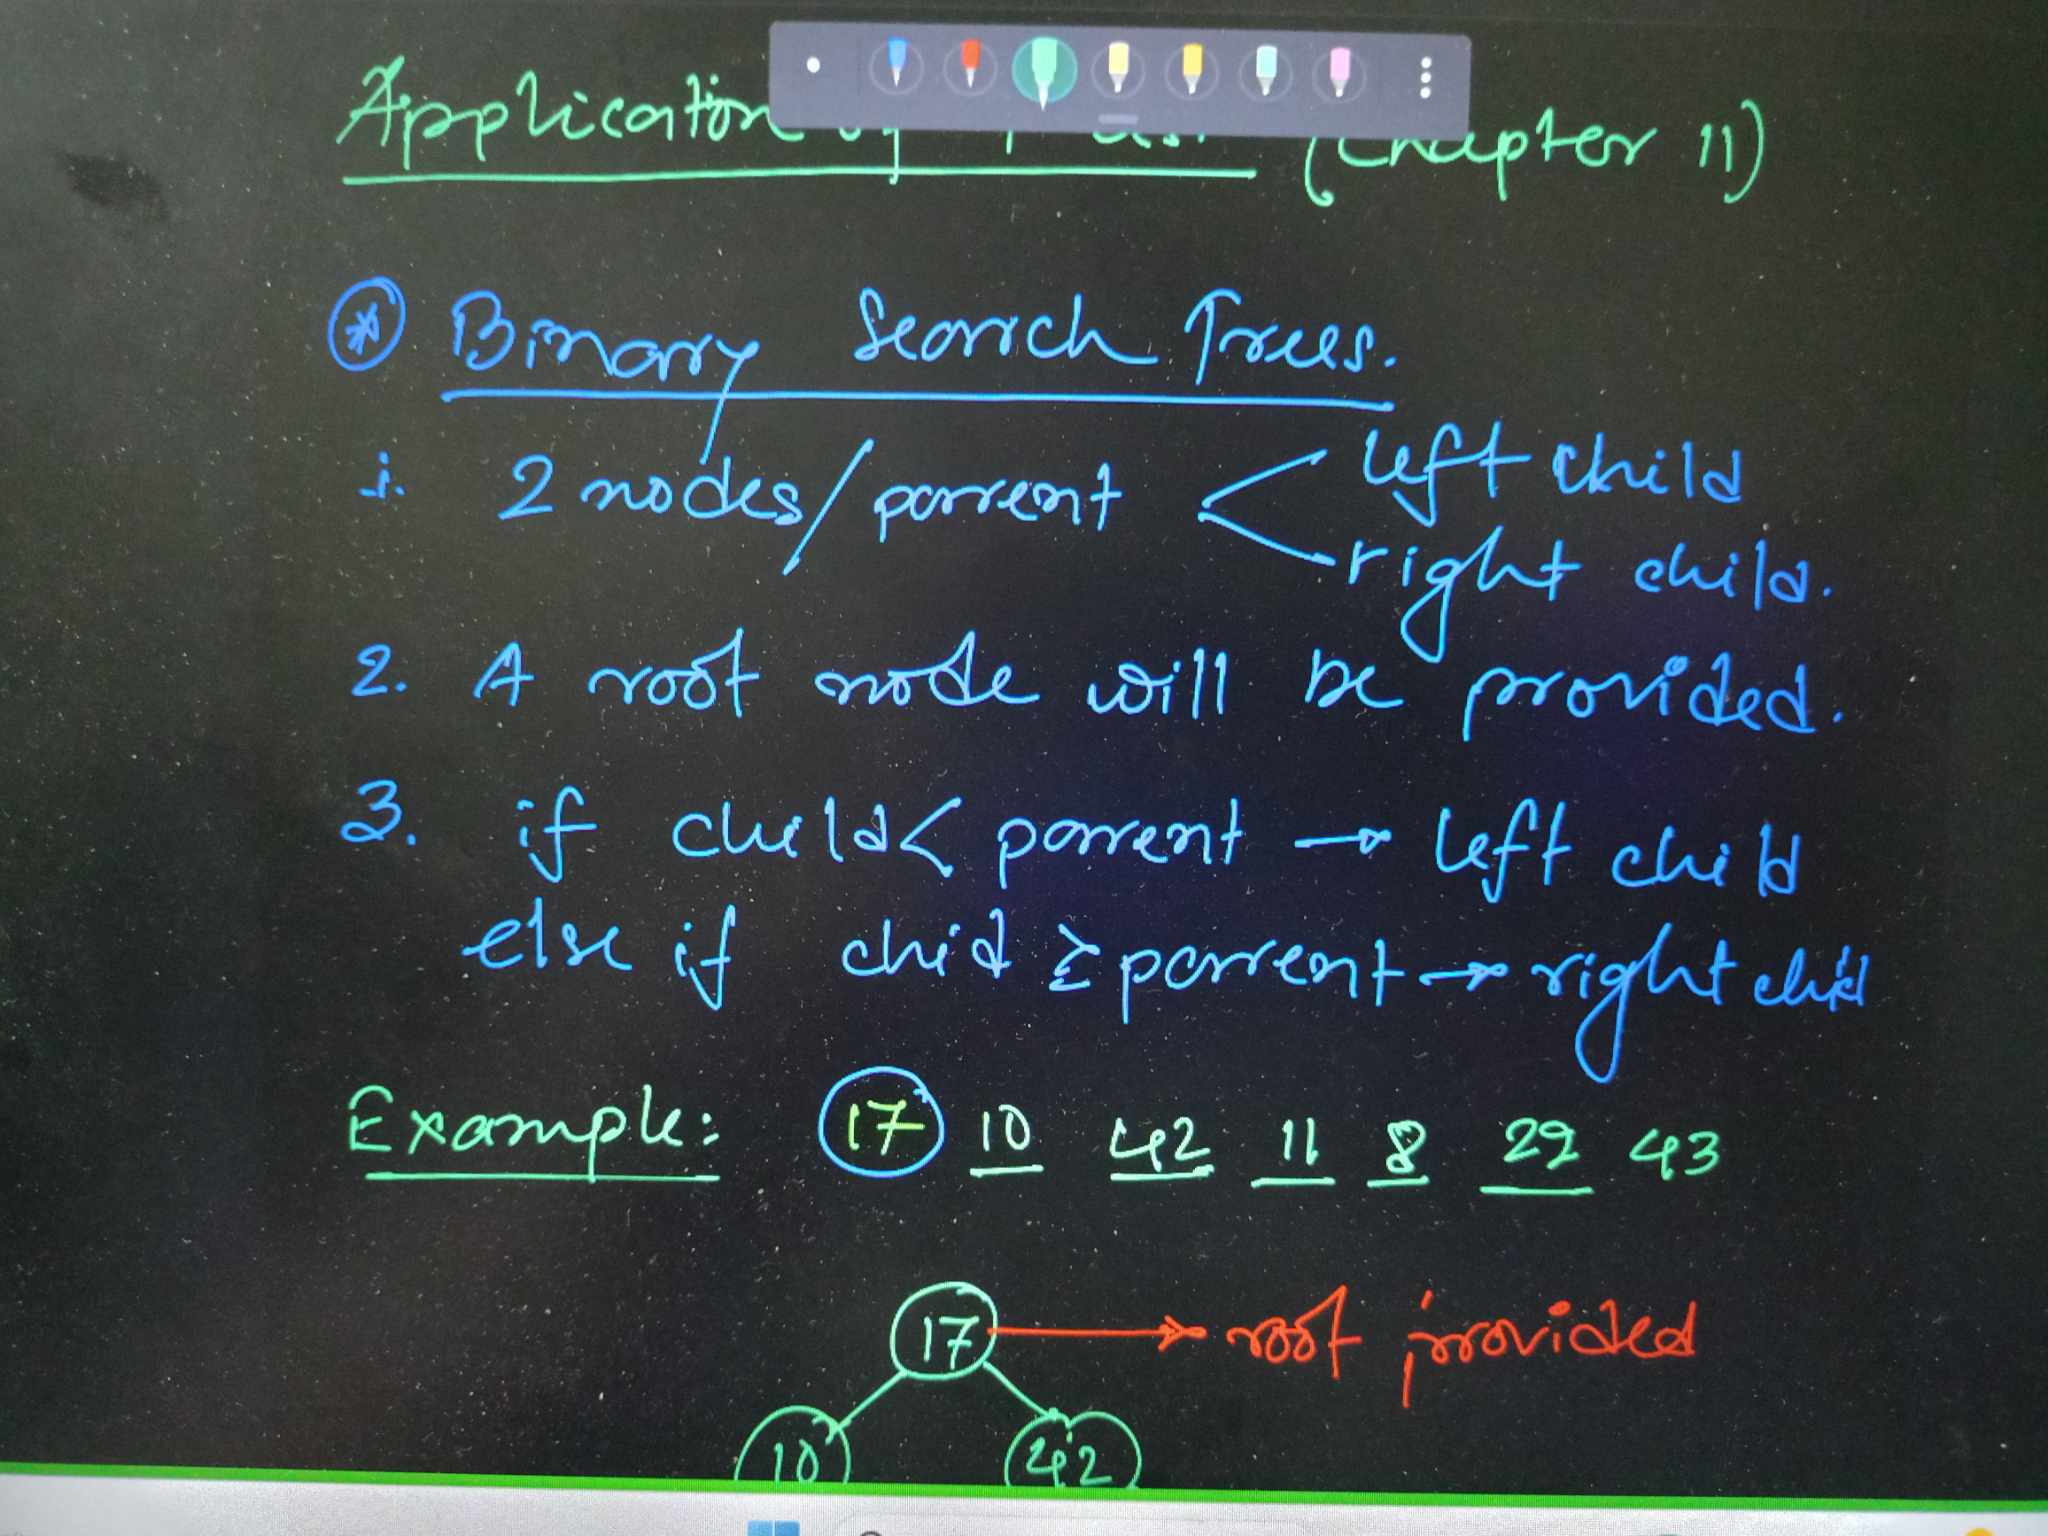 Application (Chapter 11)
* Binary Search Trees.
1. 2 nodes/parent < left child
right child.
2. A root node will be provided.
3. if child < parent → left child
else if chid ≥ parent → right child
Example: 17 10 42 11 8 29 43
17 → root provided
10 42